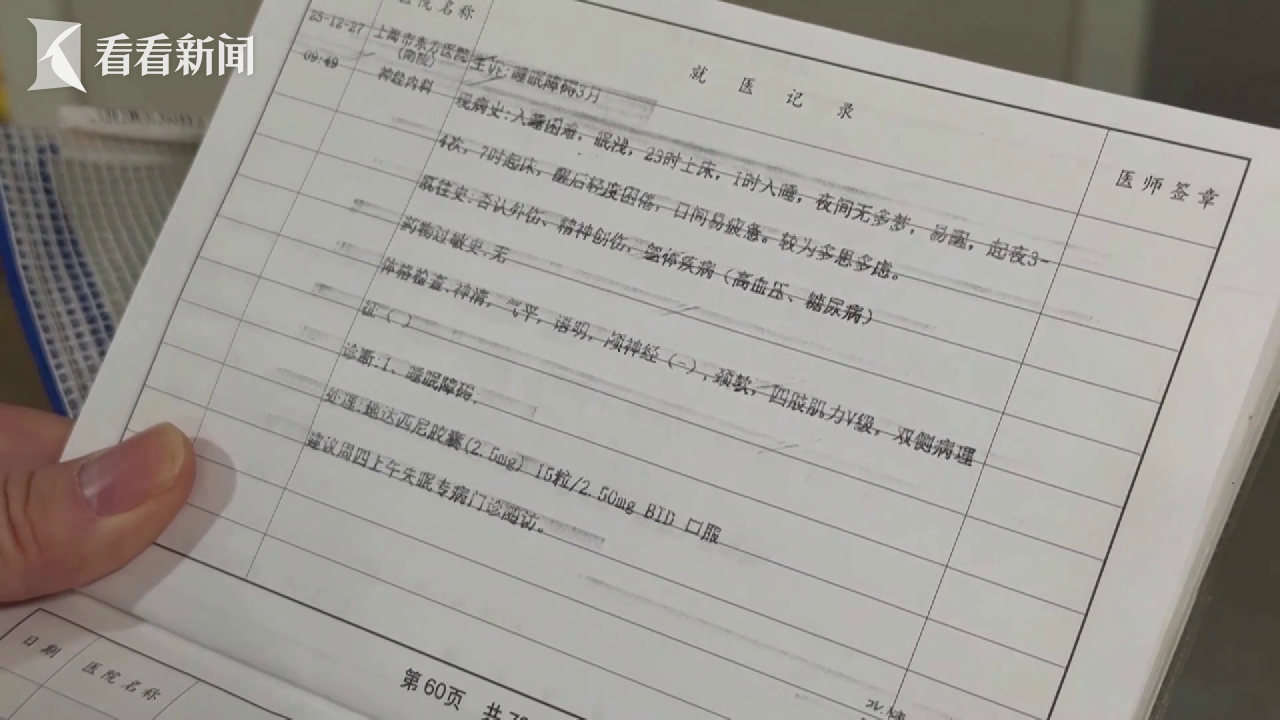 看看新闻
医院名称
就医记录
医师签章
25-12-27
09:49
上海市东方医院
(南院)
神经内科
主诉:睡眠障碍3月
现病史:入睡困难，眠浅，23时上床，1时入睡，夜间无多梦，易醒，起夜3-
4次，7时起床，醒后轻度困倦，日间易疲惫。较为多思多虑。
既往史:否认外伤、精神创伤、躯体疾病（高血压、糖尿病）
药物过敏史:无
体格检查:神清，气平，语明，颅神经（-），颈软，四肢肌力V级，双侧病理
征（ ）
诊断:1、睡眠障碍;
处理:地达西尼胶囊(2.5mg) 15粒/2.50mg BID 口服
建议周四上午失眠专病门诊随访。
第60页 共
日期
医院名称